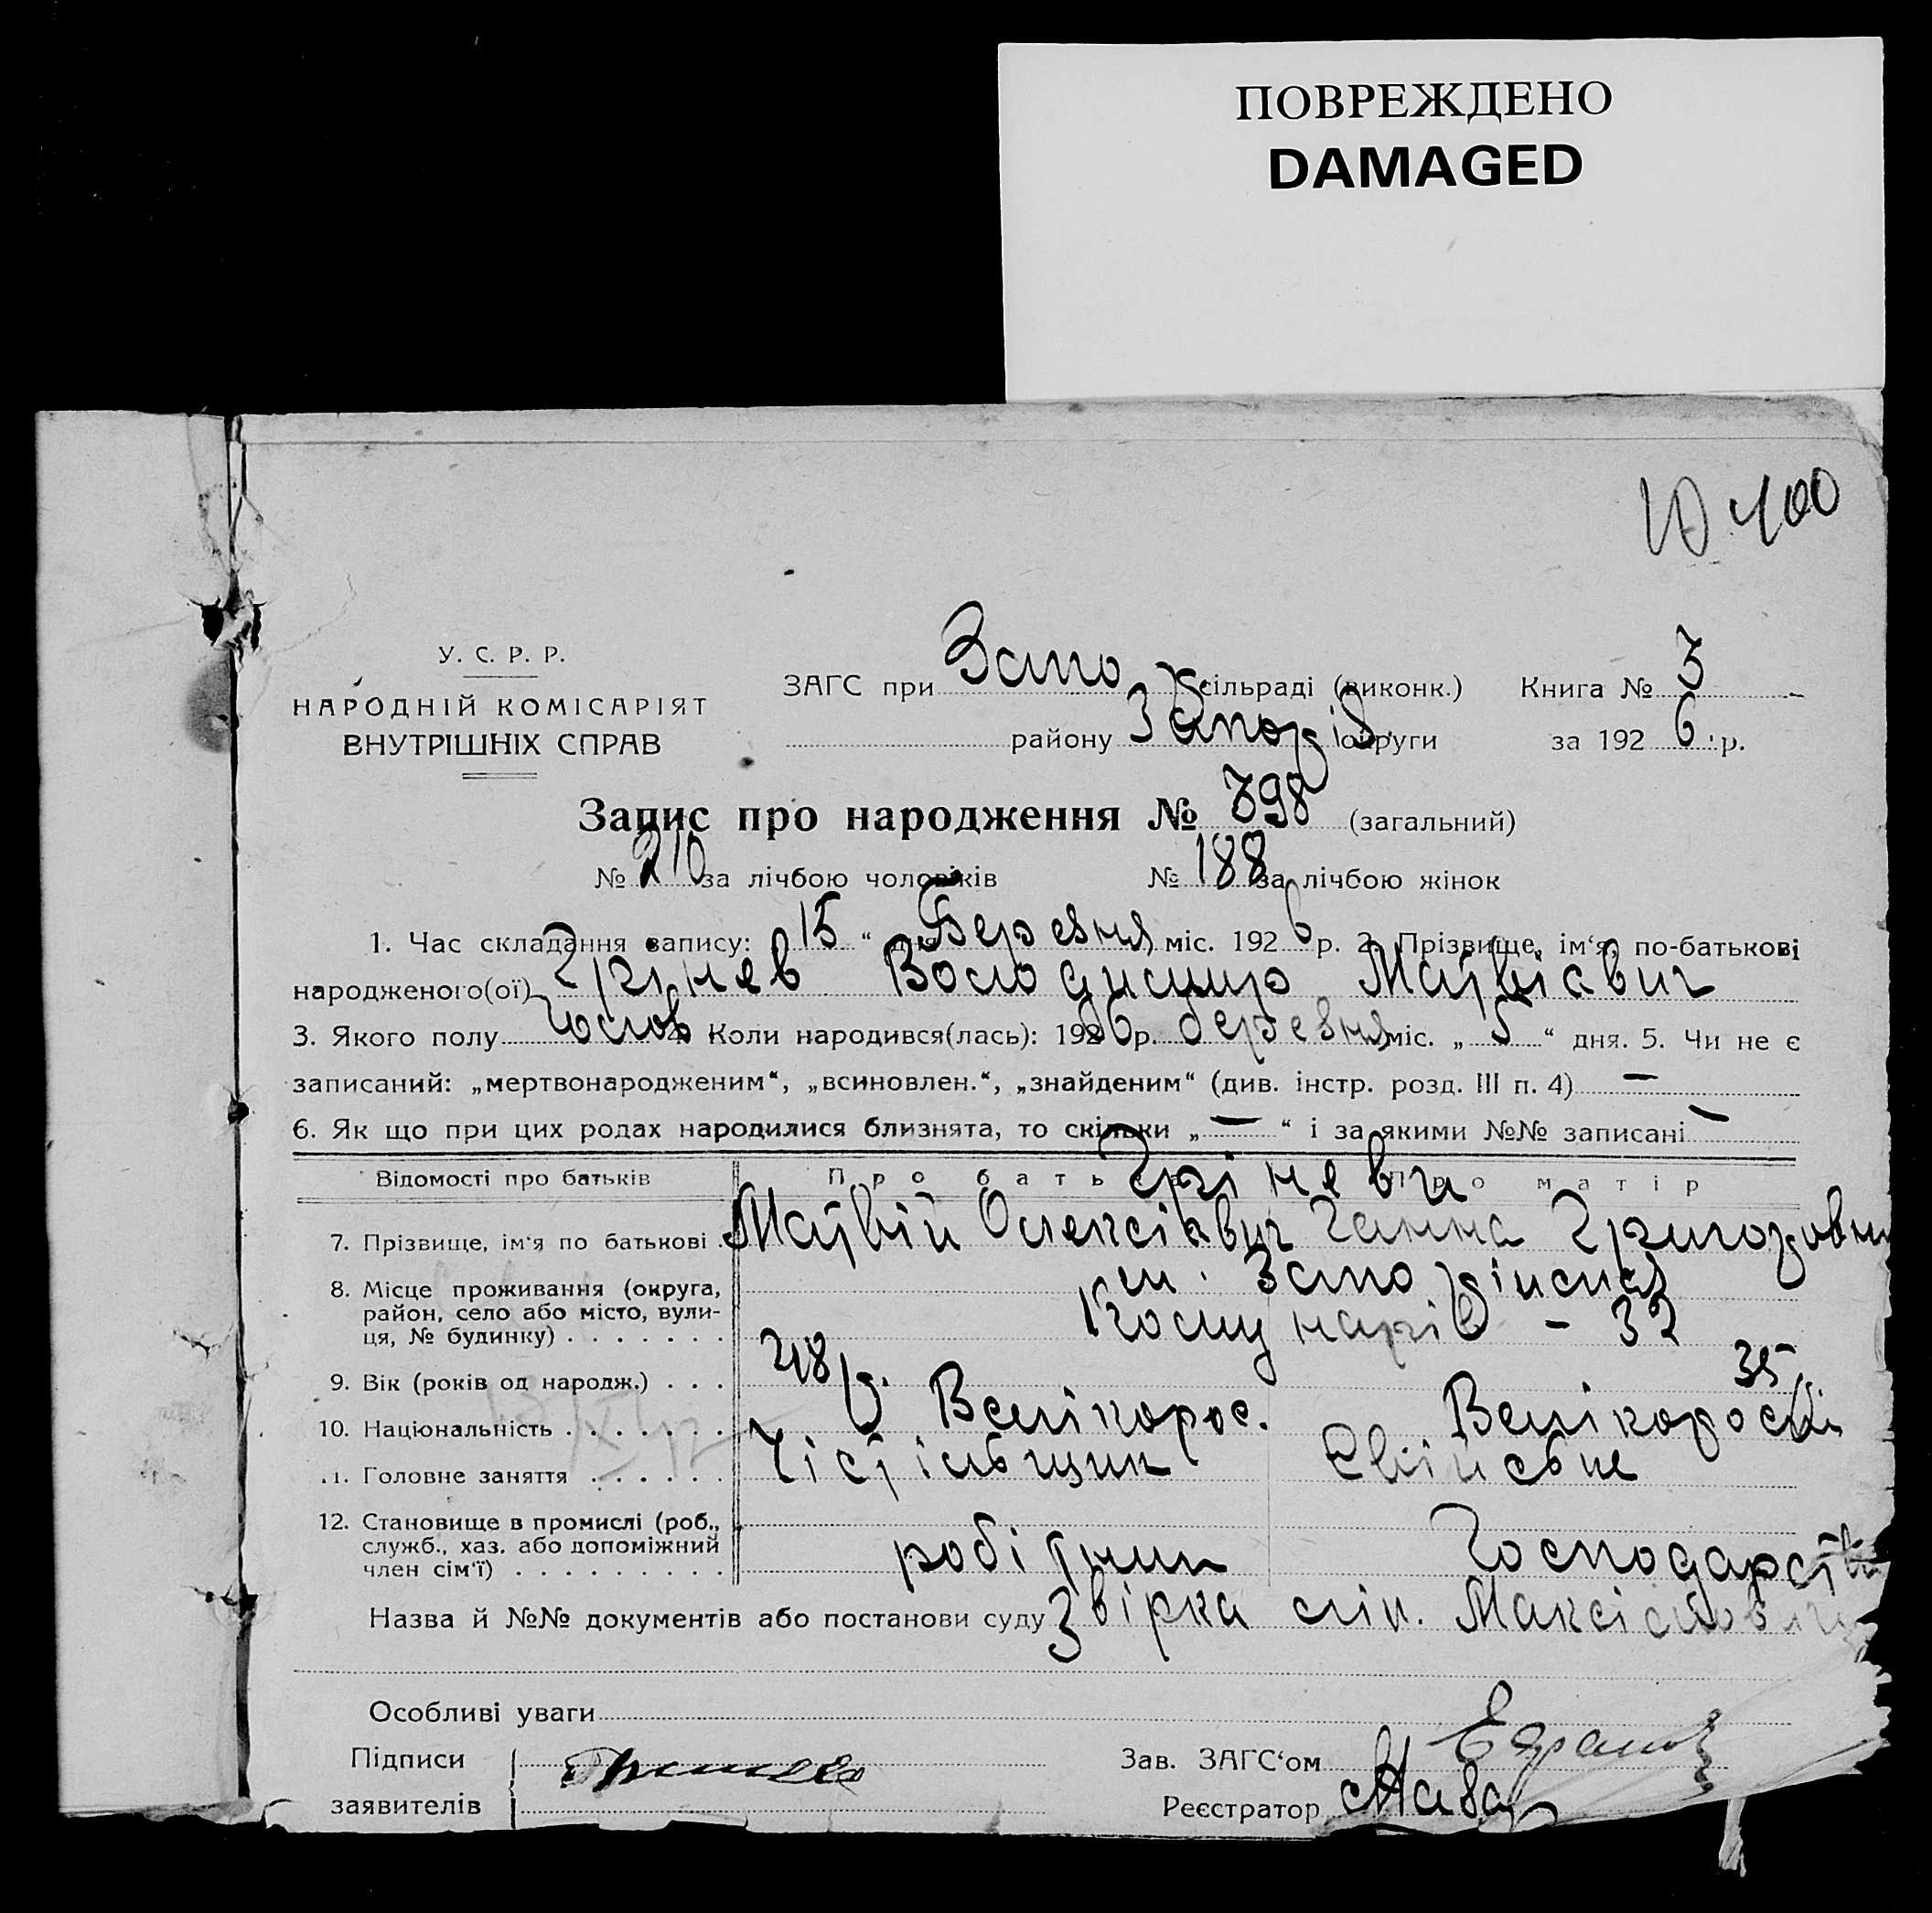 ПОВРЕЖДЕНО
DAMAGED
У. С. Р. Р.
НАРОДНІЙ КОМІСАРІЯТ
ВНУТРІШНІХ СПРАВ
ЗАГС при Запо сільраді (виконк.) Книга № 3
району Запоріз округи за 1926 р.
Запис про народження № 398 (загальний)
№ 210 за лічбою чоловіків № 188 за лічбою жінок
1. Час складання запису: „15“ дня Березня міс. 1926 р. 2. Прізвище, ім‘я, по-батькові
народженого(ої) Грінев Володимир Матвієвич
3. Якого полу Чолов 4. Коли народився(лась): 1926 р. березня міс. „5“ дня. 5. Чи не є
записаний: „мертвонародженим“, „всиновлен.“, „знайденим“ (див. інстр. розд. III п. 4) —
6. Як що при цих родах народилися близнята, то скільки „—“ і за якими №№ записані —
Відомості про батьків Про батька Про матір
Гріневи
7. Прізвище, ім‘я по батькові . Матвій Олексієвич Ганна Григоровн
8. Місце проживання (округа, район, село або місто, вулиця, № будинку) . . . . . . . м. Запоріжжя
Комунарів – 32
9. Вік (років од народж.) . . . 48 р. 35
10. Національність . . . . . . . Велікорос. Велікорос
11. Головне заняття . . . . . . Чістільщик Свійське
12. Становище в промислі (роб., служб., хаз. або допоміжний член сім‘ї) . . . . . . . . . робітник Господарст
Назва й №№ документів або постанови суду Звірка
Особливі уваги
Підписи
заявителів
Зав. ЗАГС‘ом
Реєстратор